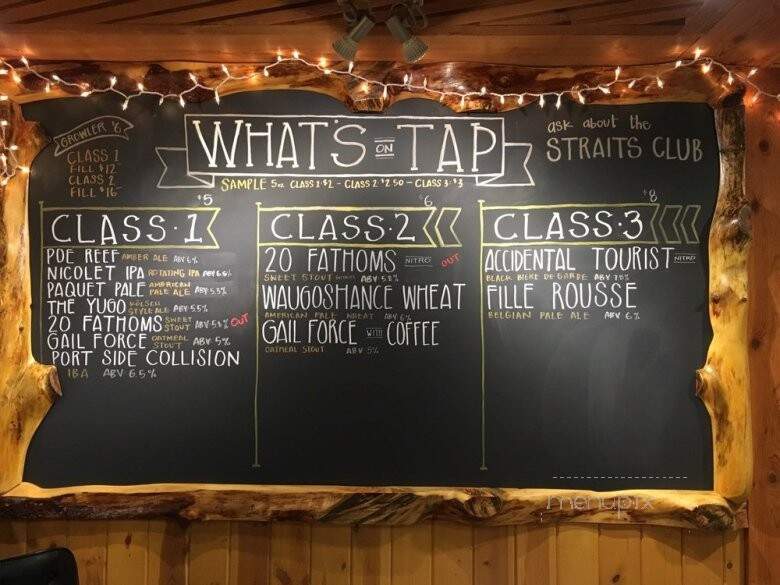 GROWLER $6
CLASS 1
FILL $12
CLASS 2
FILL $16
WHAT'S ON TAP
ask about the
STRAITS CLUB
SAMPLE 5oz CLASS 1 $2 - CLASS 2 $2.50 - CLASS 3 $3
$5
CLASS · 1
POE REEF AMBER ALE ABV 6%
NICOLET IPA ROTATING IPA
PAQUET PALE AMERICAN PALE ALE ABV 5.3%
THE YUGO KÖLSCH STYLE ALE ABV 5.5%
20 FATHOMS SWEET STOUT ABV OUT
GAIL FORCE OATMEAL STOUT ABV 5%
PORT SIDE COLLISION
IBA ABV 6.5%
$6
CLASS · 2
20 FATHOMS NITRO OUT
SWEET STOUT ABV
WAUGOSHANCE WHEAT
AMERICAN PALE WHEAT ABV 6%
GAIL FORCE WITH COFFEE
OATMEAL STOUT ABV 5%
$8
CLASS · 3
ACCIDENTAL TOURIST NITRO
BLACK BIERE DE GARDE ABV
FILLE ROUSSE
BELGIAN PALE ALE ABV 6%
menupix